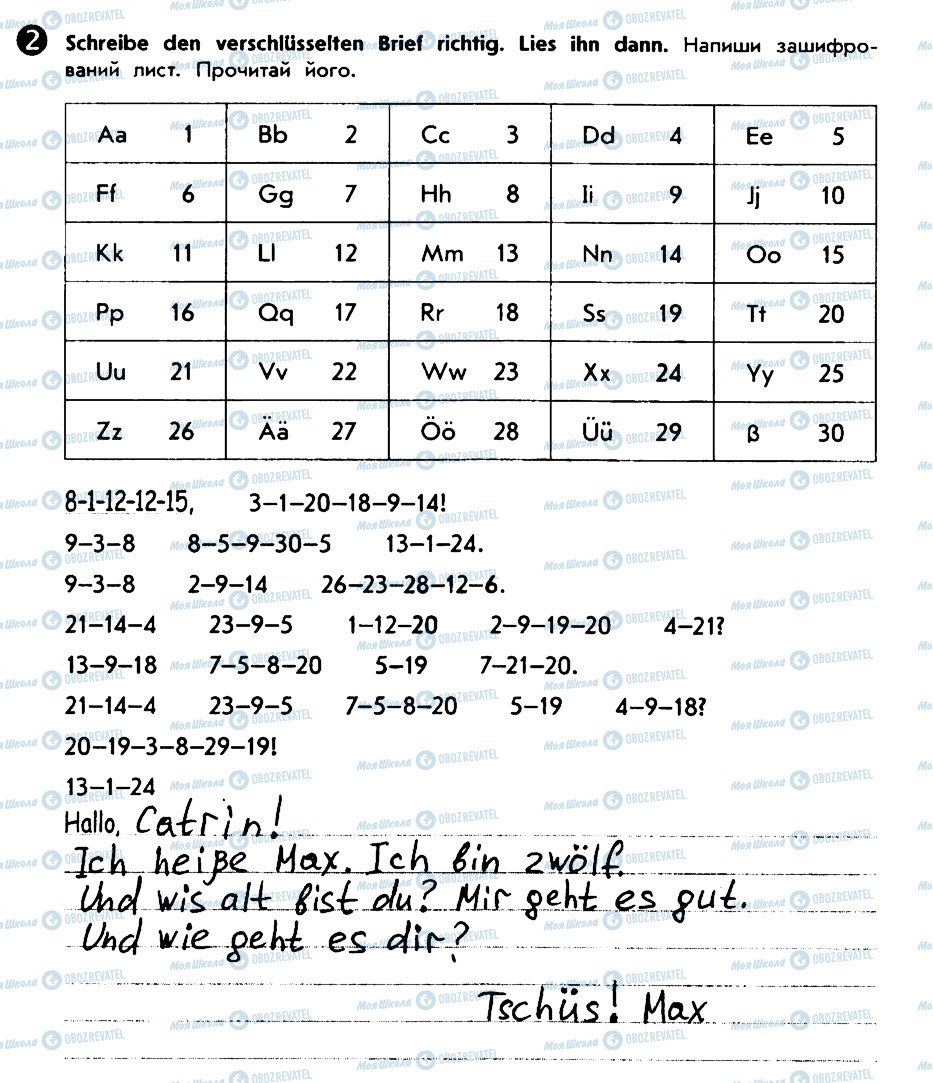 2 Schreibe den verschlüsselten Brief richtig. Lies ihn dann. Напиши зашифро-
ваний лист. Прочитай його.
Aa 1 Bb 2 Cc 3 Dd 4 Ee 5
Ff 6 Gg 7 Hh 8 Ii 9 Jj 10
Kk 11 Ll 12 Mm 13 Nn 14 Oo 15
Pp 16 Qq 17 Rr 18 Ss 19 Tt 20
Uu 21 Vv 22 Ww 23 Xx 24 Yy 25
Zz 26 Ää 27 Öö 28 Üü 29 ß 30
8-1-12-12-15, 3–1–20–18–9–14!
9–3–8 8–5–9–30–5 13–1–24.
9–3–8 2–9–14 26–23–28–12–6.
21–14–4 23–9–5 1–12–20 2–9–19–20 4–21?
13–9–18 7–5–8–20 5–19 7–21–20.
21–14–4 23–9–5 7–5–8–20 5–19 4–9–18?
20–19–3–8–29–19!
13–1–24
Hallo, Catrin!
Ich heiße Max. Ich bin zwölf.
Und wis alt bist du? Mir geht es gut.
Und wie geht es dir?
Tschüs! Max
Моя Школа OBOZREVATEL